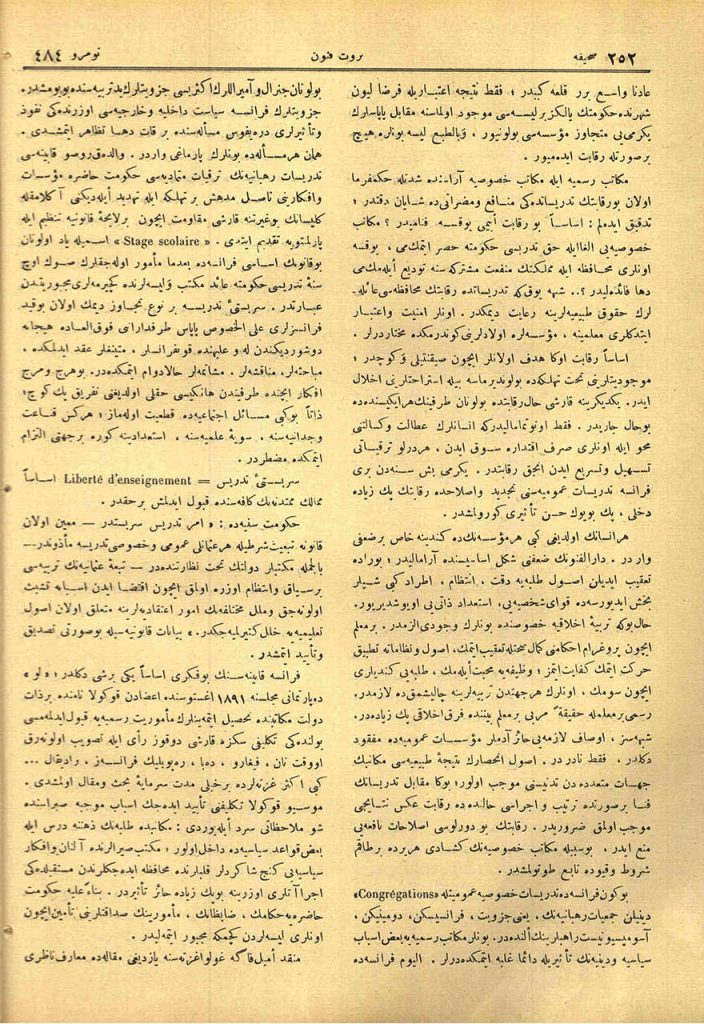 ٢٥٢ صحیفه
ثروت فنون
نومرو ٤٨٤
عادتا واسع برر قلعه کبیدر ؛ فقط نتیجه اعتباریله فرضا لیون
شهرنده حکومتك یالکز بر لیسه‌سی موجود اولماسنه مقابل پاپاسلرك
یکرمی‌یی متجاوز مؤسسه‌سی بولنیور ، وبالطبع لیسه بونلره هیچ
بر صورتله رقابت ایده‌میور .
مکاتب رسمیه ایله مکاتب خصوصیه آراسنده شدتله حکمفرما
اولان بو رقابتك تدریساتده‌کی منافع ومضراتی ده شایان دقتدر ؛
تدقیق ایده‌لم : اساساً بو رقابت أییمی یوقسه فنامیدر ؟ مکاتب
خصوصیه‌یی الغا ایله حق تدریسی حکومته حصر ایتمك‌می ، یوقسه
اونلری محافظه ایله مملکتك منفعت مشترکه‌سنه تودیع أیله‌مك‌می
دها فائده‌لیدر ؟.. شبهه یوق که تدریساتده رقابتك محافظه‌سی عائله-
لرك حقوق طبیعیه‌لرینه رعایت دیمکدر . اونلر امنیت واعتبار
ایتدکلری معلمینه ، مؤسسه‌لره اولادلرینی کوندرمکده مختاردرلر .
اساساً رقابت اوکا هدف اولانلر ایچون صیقنتیلی وکوجدر ؛
موجودیتلرینی تحت تهلکه‌ده بولوندیرماسه بیله استراحتلرینی اخلال
ایدر . یکدیکرینه قارشی حال رقابتده بولونان طرفینك هر ایکیسنده ده
بوحال جاریدر . فقط اونوتمامالیدرکه انسانلرك عطالت وکسالتنی
محو ایله اونلری صرف اقتداره سوق ایدن ، هر درلو ترقیاتی
تسهیل وتسریع ایدن آنجق رقابتدر . یکرمی بش سنه‌دن بری
فرانسه تدریسات عمومیه‌سنی تجدید واصلاحده رقابتك پك زیاده
دخلی ، پك بویوك حسن تأثیری کورولمشدر .
هر انسانك اولدیغی کبی هر مؤسسه‌نك ده کندینه خاص بر ضعفی
واردر . دارالفنونك ضعفنی شکل اساسیسنده آرامالیدر ؛ بوراده
تعقیب ایدیلن اصول طلبه‌یه دقت ، انتظام ، اطراد کبی شیلر
بخش ایدیورسه ده قوای شخصیه‌یی ، استعداد ذاتی‌یی اویوشدیریور .
حال بوکه تربیهٔ اخلاقیه خصوصنده بونلرك وجودی الزمدر . بر معلم
ایچون پروغرام احکامنی کمال صحتله تعقیب ایتمك ، اصول ونظاماته تطبیق
حرکت ایتمك کفایت ایتمز ؛ وظیفه‌یه محبت أیله‌مك ، طلبه‌یی کندیلری
ایچون سومك ، اونلرك هر جهتدن تربیه‌لرینه چالیشمق ده لازمدر .
رسمی بر معلمله حقیقةً مربی بر معلم بیننده فرق اخلاقی پك زیاده‌در .
شبهه‌سز ، اوصاف لازمه‌یی حائز آدملر مؤسسات عمومیه‌ده مفقود
دکلدر ، فقط نادردر . اصول انحصارك نتیجهٔ طبیعیه‌سی مکاتبك
جهات متعدده‌دن تدنیسنی موجب اولور ؛ بوکا مقابل تدریساتك
فنا بر صورتده ترتیب واجراسی حالنده ده رقابت عکس نتایجی
موجب اولمق ضروریدر . رقابتك بو درلوسی اصلاحات نافعه‌یی
منع ایدر ، بوسبیله مکاتب خصوصیه‌نك کشادی هر یرده بر طاقم
شروط وقیوده تابع طوتولمشدر .
بوکون فرانسه‌ده تدریسات خصوصیه عمومیتله «Congrégations»
دینیلن جمعیات رهبانیه‌نك ، یعنی جزویت ، فرانسیسکن ، دومینیکن ،
آسومپسیونیست راهبلرینك ألنده‌در . بونلر مکاتب رسمیه‌یه بعض اسباب
سیاسیه ودینیه‌نك تأثیریله دائما غلبه ایتمکده‌درلر . الیوم فرانسه‌ده
بولونان جنرال وآمیراللرك اکثریسی جزویتلرك ید تربیه‌سنده بویومشدر .
جزویتلرك فرانسه سیاست داخلیه وخارجیه‌سی اوزرنده‌کی نفوذ
وتأثیرلری دره‌یفوس مسأله‌سنده بر قات دها تظاهر ایتمشدی .
همان هر مسأله‌ده بونلرك پارماغی واردر . والده‌ق روسو قابینه‌سی
تدریسات رهبانیه‌نك ترقیات متمادیه‌سی حکومت حاضره مؤسسات
وافکارینی ناصل مدهش بر تهلکه ایله تهدید أیله‌دیکنی آکلامقله
کلیسانك بو غیرتنه قارشی مقاومت ایچون بر لایحهٔ قانونیه تنظیم ایله
پارلمنتویه تقدیم ایتدی . «Stage scolaire» اسمیله یاد اولونان
بو قانونك اساسی فرانسه‌ده بعدما مأمور اوله‌جقلرك صوك اوچ
سنهٔ تدریسی حکومته عائد مکتب ولیسه‌لرنده کچیرمه‌لری مجبوریتندن
عبارتدر . سربستیٔ تدریسه بر نوع تجاوز دیمك اولان بوقید
فرانسزلری علی الخصوص پاپاس طرفدارانی فوق‌العاده هیجانه
دوشوردیکندن له وعلیهنده قونفرانسلر ، متینغلر عقد ایدلمکده .
مباحثه‌لر ، مناقشه‌لر ، مشاتمه‌لر حالا دوام ایتمکده‌در . بو هرج ومرج
افکار ایچنده طرفیندن هانکیسی حقلی اولدیغنی تفریق پك کوچ ؛
ذاتاً بوکبی مسائل اجتماعیه‌ده قطعیت اوله‌ماز ؛ هرکس قناعت
وجدانیه‌سنه ، سویهٔ علمیه‌سنه ، استعدادینه کوره بر جهتی التزام
ایتمکده مضطردر .
سربستیٔ تدریس = Liberté d'enseignement اساساً
ممالك متمدنه‌نك کافه‌سنده قبول ایدلمش بر حقدر .
حکومت سنیه‌ده : « امر تدریس سربستدر — معین اولان
قانونه تبعیت شرطیله هر عثمانلی عمومی وخصوصی تدریسه مأذوندر —
بالجمله مکتبلر دولتك تحت نظارتنده‌در — تبعهٔ عثمانیه‌نك تربیه‌سی
بر سیاق وانتظام اوزره اولمق ایچون اقتضا ایدن اسبابه تشبث
اولونه‌جق وملل مختلفه‌نك امور اعتقادیه‌لرینه متعلق اولان اصول
تعلیمیه‌یه خلل کتیریلمیه‌جکدر . » بیانات قانونیه‌سیله بو صورتی تصدیق
وتأیید ایتمشدر .
فرانسه قابینه‌سنك بو فکری اساساً یکی بر شی دکلدر ؛ « لو »
ده‌پارتمانی مجلسنه ١٨٩١ اغستوسنده اعضادن قوکولا نامنده بر ذات
دولت مکاتبنده تحصیل ایتمه‌ینلرك مأموریت رسمیه‌یه قبول ایدلمه‌مسی
یولنده‌کی تکلیفی سکزه قارشی دوقوز رأی ایله تصویب اولونه‌رق
اووقت تان ، فیغارو ، ده‌با ، ره‌پوبلیك فرانسه‌ز ، رادیقال ...
کبی اکثر غزته‌لرده بر خیلی مدت سرمایهٔ بحث ومقال اولمشدی .
موسیو قوکولا تکلیفنی تأیید ایده‌جك اسباب موجبه صیراسنده
شو ملاحظاتی سرد أیله‌یوردی : مکاتبده طلبه‌نك ذهننه درس ایله
بعض قواعد سیاسیه‌ده داخل اولور ؛ مکتب صیرالرنده آلنان وافکار
سیاسیه‌یی کنج شاکردلر قلبلرنده محافظه ایده‌جکلرندن مستقبلده‌کی
اجرا آتلری اوزرینه بویك زیاده حائز تأثیردر . بناءً علیه حکومت
حاضره‌یه حکامك ، ضابطانك ، مأمورینك صداقتلرینی تأمین ایچون
اونلری لیسه‌لردن کچمکه مجبور ایتمه‌لیدر .
منقد أمیل فاگه غولواغزته‌سنه یازدیغی مقاله‌ده معارف ناظری